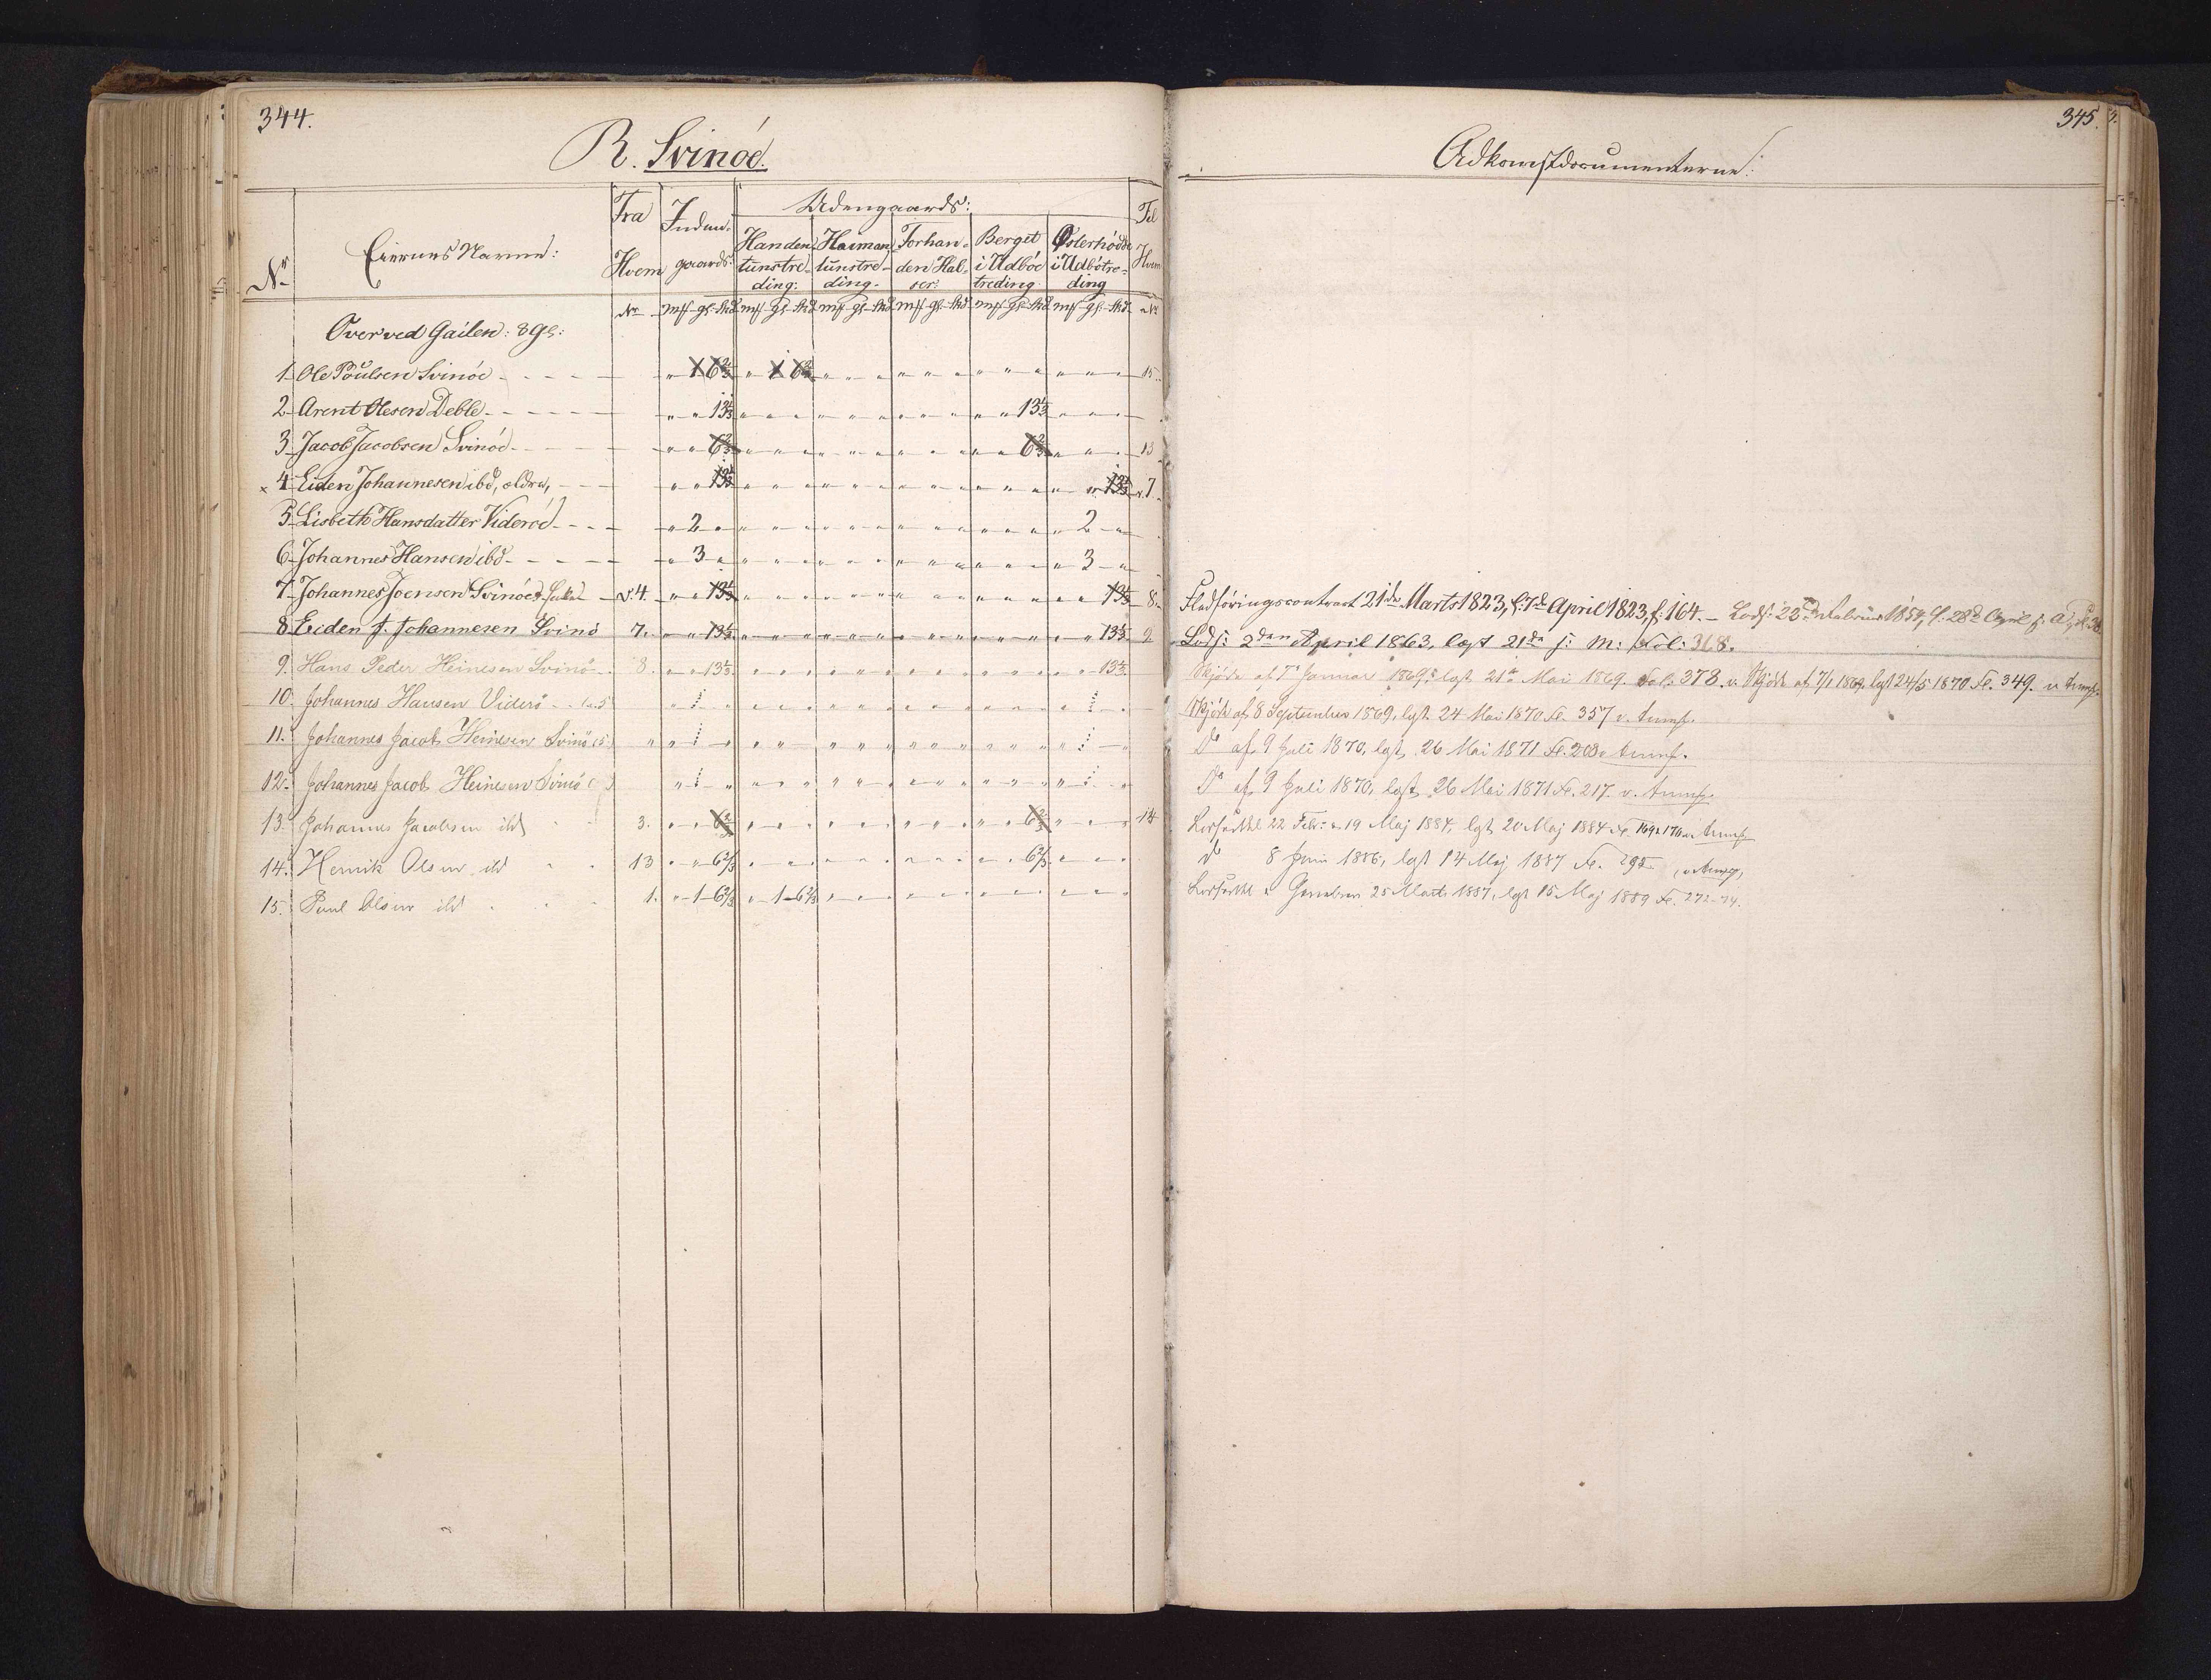 344.
R. Svinöe.
Nr
Eiernes Navne:
Fra Hvem
Inden-gaards:
Udengaards:
Handen-tunstre-ding:
Heiman-tunstre-ding-
Forhan-den Hal-ser:
Berget i Udböe treding
Østerhödde i Udbötre-ding
Til Hvem
Nr mk gl. skd mk gl. skd mk gl. skd mk gl. skd mk gl. skd mk gl. skd Nr
Over ved Gailen: 8 gl:
1 Ole Poulsen Svinöe - - - - " 1 6 2/3 " 1 6 2/3 15
2 Arent Olesen Deble - - - - - " " 13 1/3 13 1/3
3 Jacob Jacobsen Svinöe - - - " " 6 2/3 6 2/3 13
× 4 Eiden Johannesen ibd, ældre, - - " " 13 1/3 13 1/3 v. 7
5 Lisbeth Hansdatter Videröe - - - " 2 " 2 "
6 Johannes Hansen ibd - - - - " 3 " 3 "
7 Johannes Joensen Svinöe v. 4. " " 13 1/3 13 1/3 8
8 Eiden J. Johannesen Svinö 7. " " 13 1/3 13 1/3 9
9. Hans Peder Heinesen Svinö 8. " " 13 1/3 13 1/3
10. Johannes Hansen Viderö
11. Johannes Jacob Heinesen Svinö
12. Johannes Jacob Heinesen Svinö
13. Johannes Jacobsen ibd 3. " " 6 2/3 6 2/3 14
14. Henrik Olsen ibd 13 " " 6 2/3 6 2/3
15. Poul Olsen ibd 1. " 1 6 2/3 " 1 6 2/3
345.
Adkomstdocumenterne:
Fledföringscontract 21de Marts 1823, l: 7de April 1823, f. 164. - Lods: 23de Februar 1859, l. 28de April s. A.
Lods: 2den April 1863, læst 21de s: M: Fol: 318.
Skjöde af 7 Januar 1869, læst 21de Mai 1869. Fol: 378. Skjöde af 7/1 1869 lgst 24/5 1870 Fo. 349.
Skjöde af 8 September 1869, lgst. 24 Mai 1870 Fo. 357
Do af 9 Juli 1870, lgst 26 Mai 1871 Fo.
Do af 9 Juli 1870, lgst 26 Mai 1871 Fo. 217.
22 Febr: 19 Maj 1884, lgst 20 Maj 1884 Fo.
do 8 Juni 1886, lgst 14 Maj 1887 Fo.
25 Marts 1887, lgst 15 Maj 1889 Fo. 272-74.